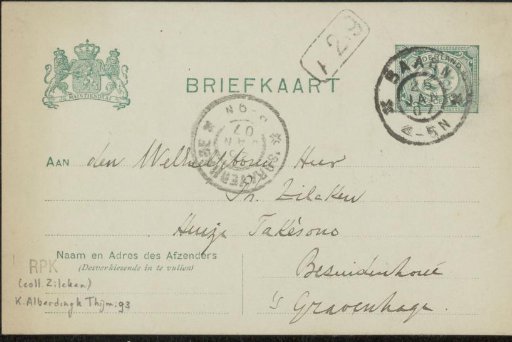 JE MAINTIENDRAI
BRIEFKAART
BAARN
25
JAN
07
4-5N
'S GRAVENHAGE
AAN den Weledelgeboren Heer
Ph. Zilcken
Huize
Bezuidenhout
's Gravenhage
Naam en Adres des Afzenders
(Desverkiezende in te vullen)
RPK
(coll. Zilcken)
K. Alberdingk Thijm: 93